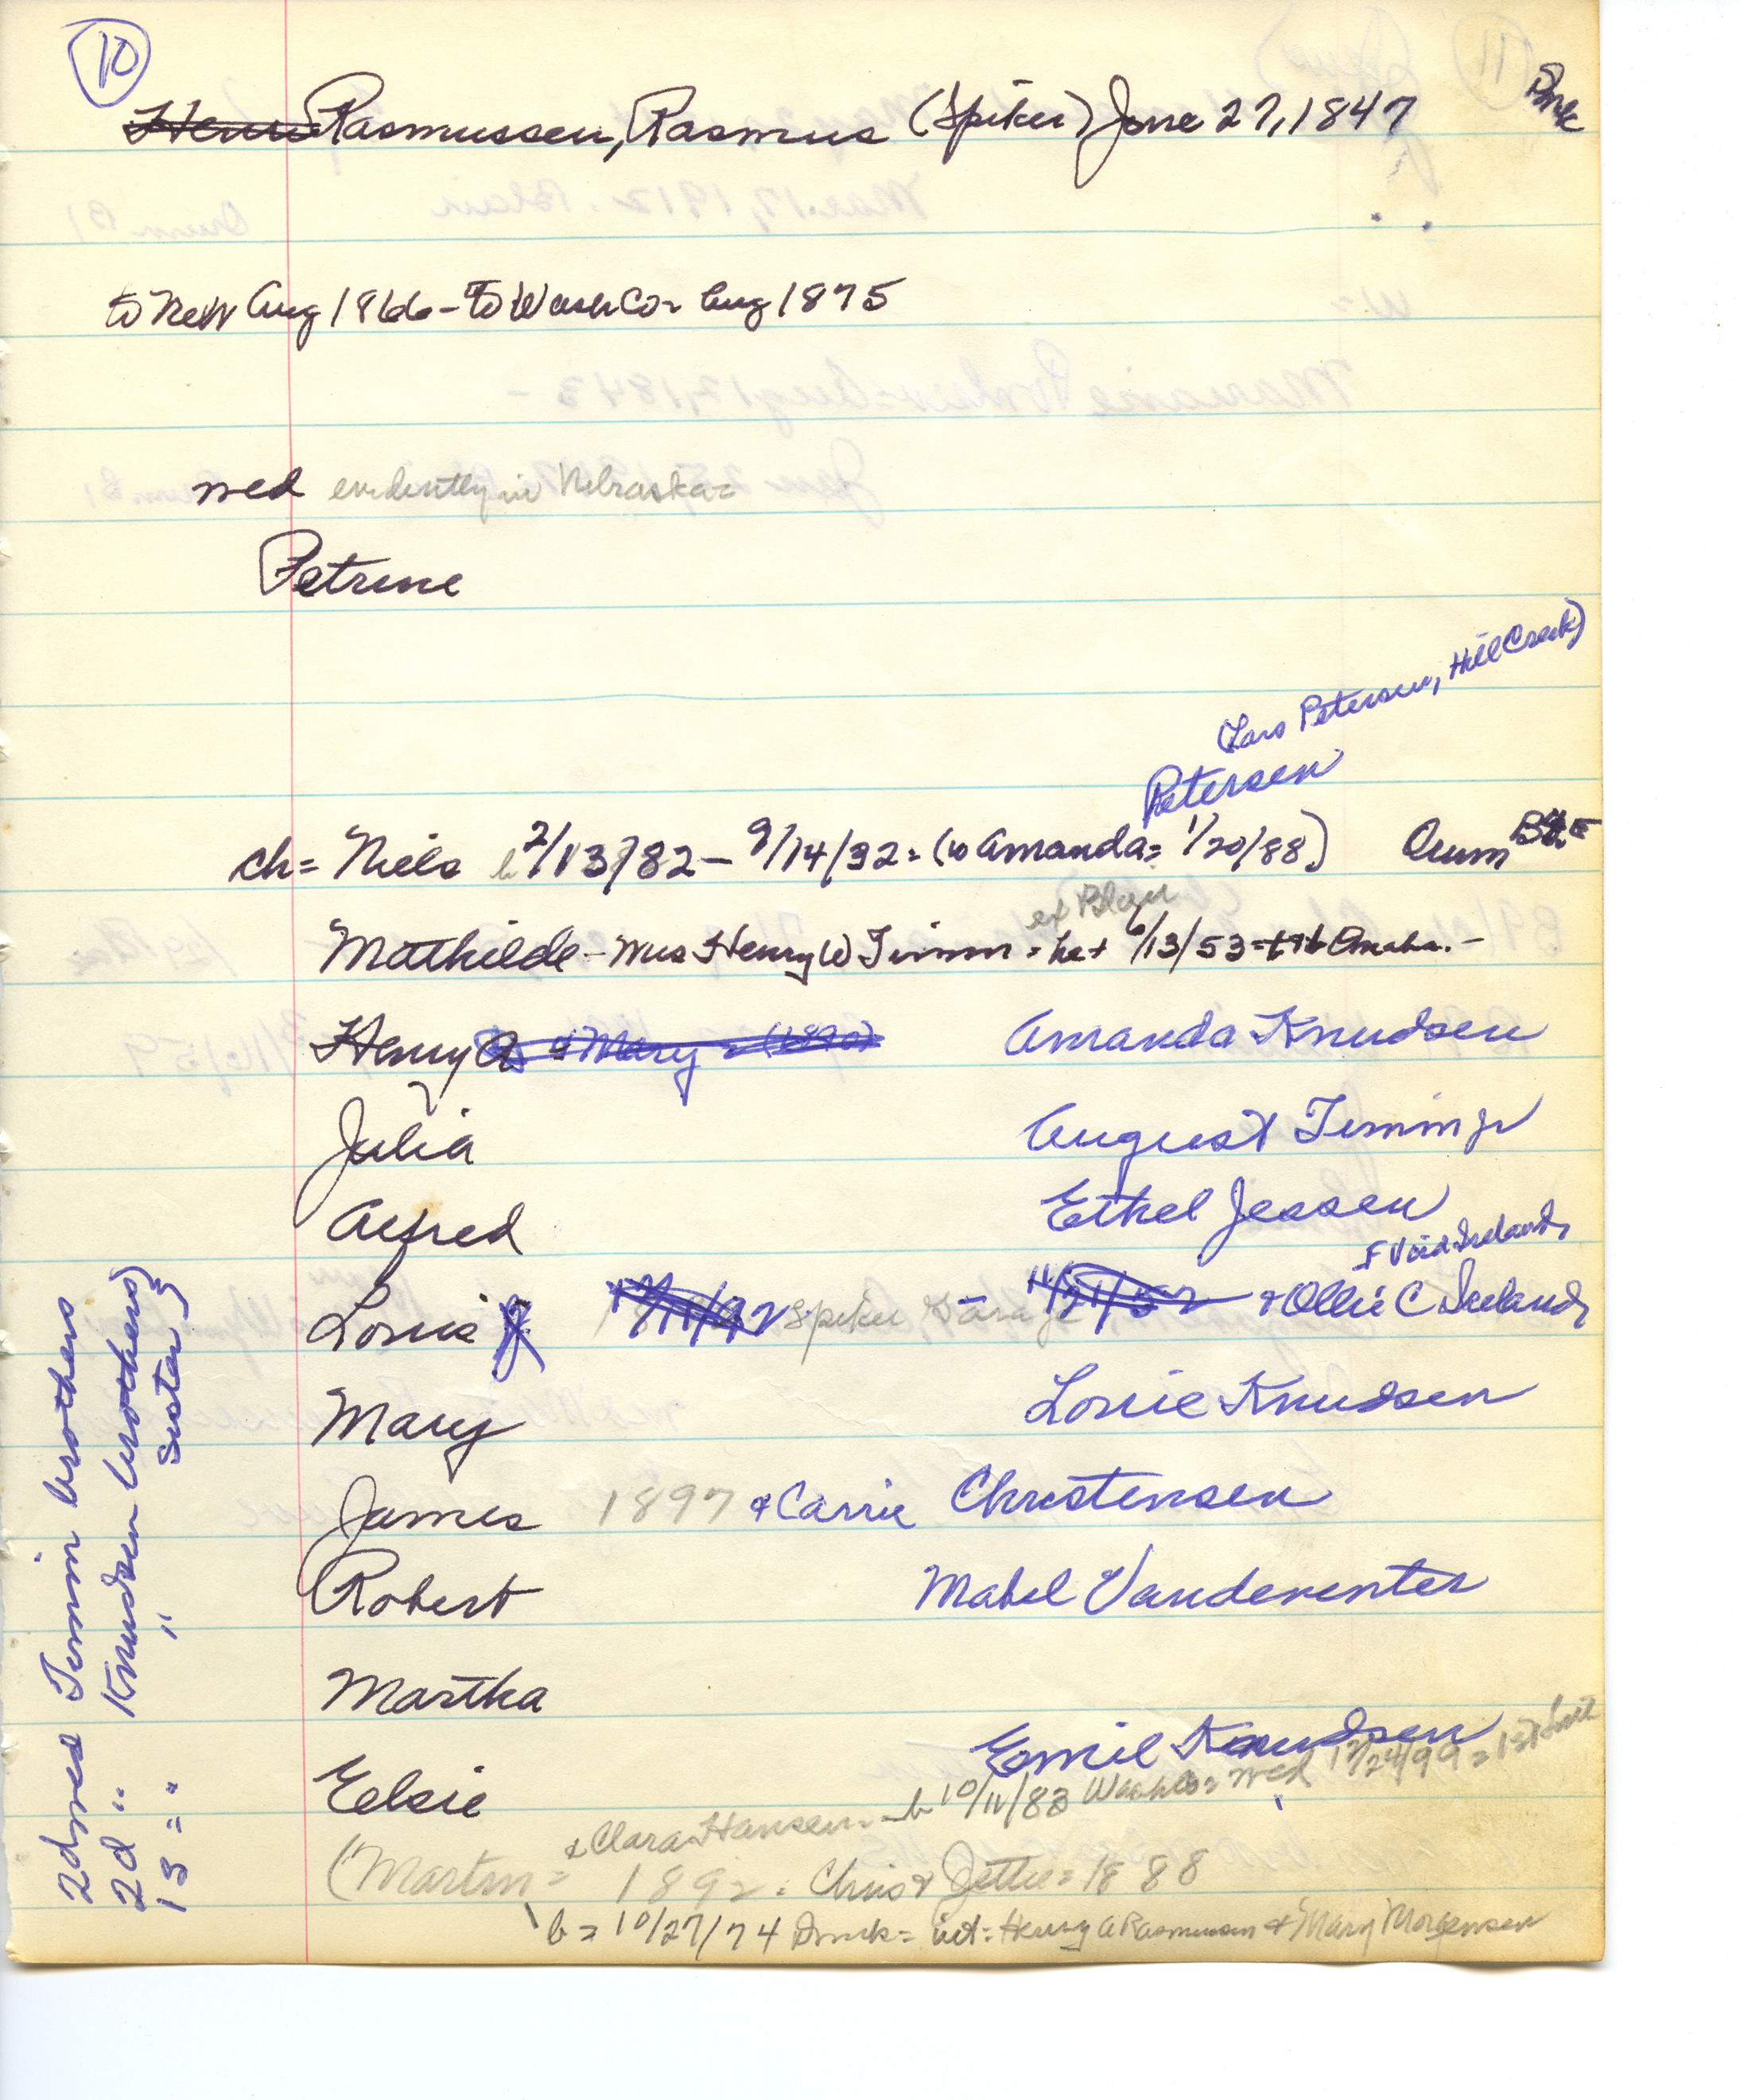 10
Rasmussen, Rasmus (Spiker) June 27, 1847
to Neb Aug 1866 - to Wash Co = Aug 1875
med evidently in Nebraska =
Petrine
(Lars Petersen, Hill Creek)
Petersen
ch = Niels b 2/13/82 - 9/14/32 = (w Amanda = 1/20/88) Orum
ex Blair
Mathilde - Mrs Henry W Timm = 6/13/53 = Omaha. -
Henry A & Mary = (1890) Amanda Knudsen
Julia August Timm Jr
Alfred Ethel Jessen
Louis Spiker & Ollie C Ireland
Mary Louie Knudsen
James 1897 & Carrie Christensen
Robert Mabel Vandeventer
Martha
Elsie Emil Knudsen
& Clara Hansen - b 10/11/83 med 12/24/99 = 1st
(Martin = 1892 = Chris & Jettie = 1888
b = 10/27/74 Dmk = int = Henry A Rasmussen & Mary Morgensen
2d med Timm brothers
2d " Knudsen brothers }
1 s = " " sister }